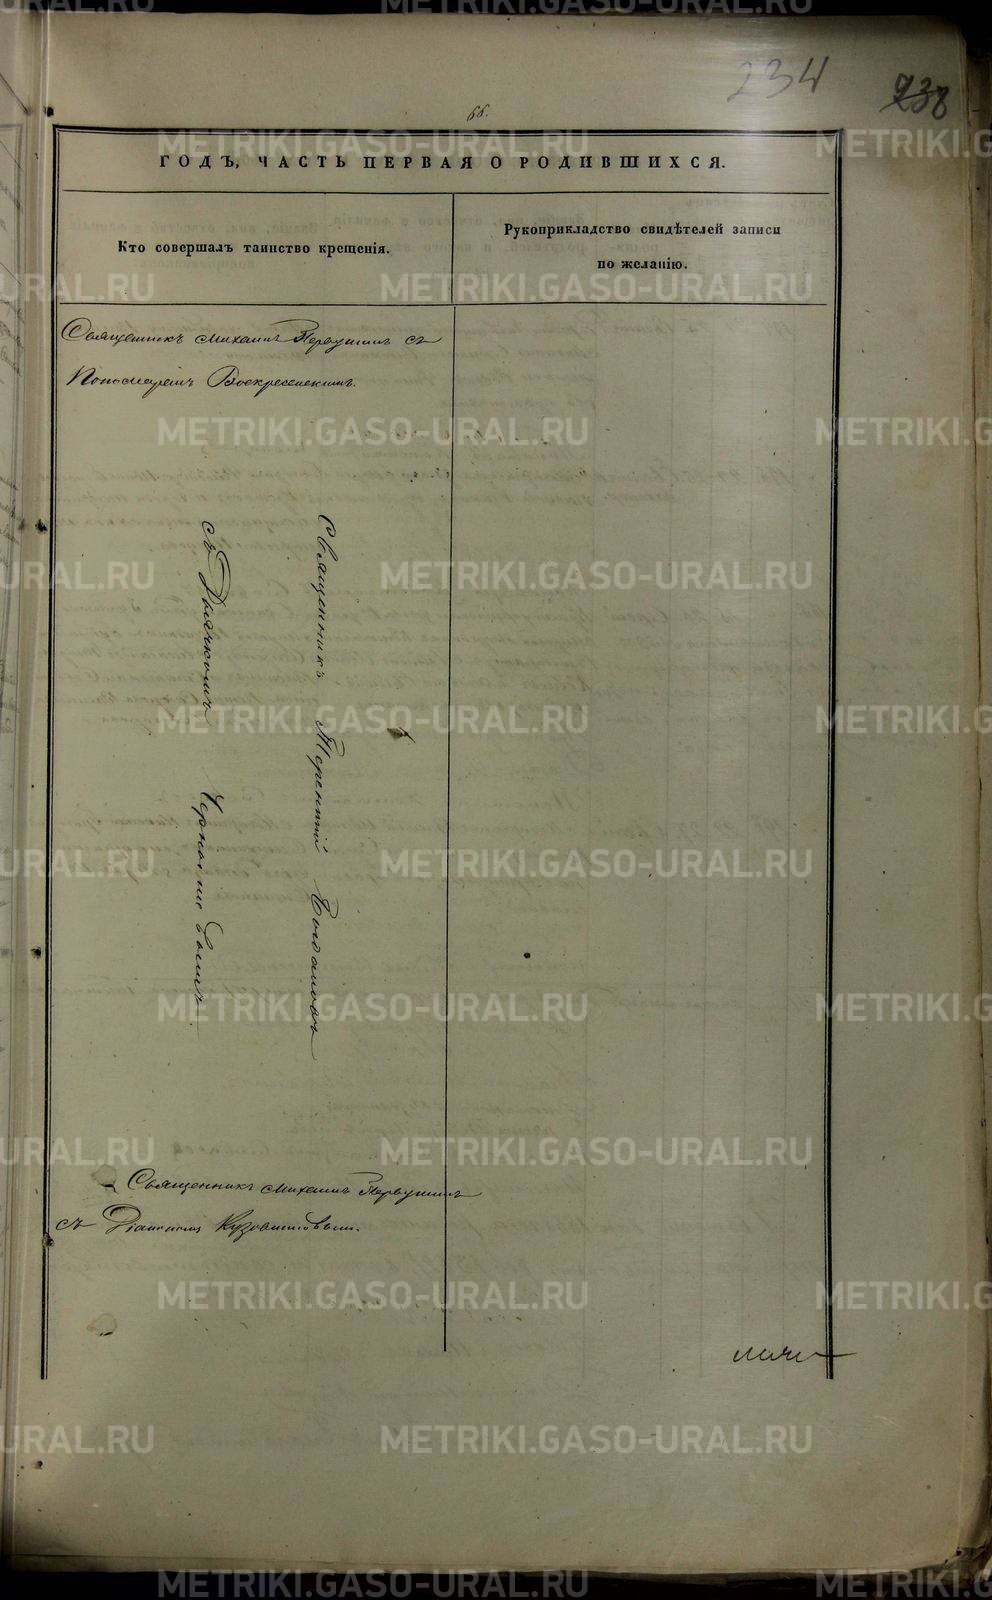 234
238
66.
ГОДЪ, ЧАСТЬ ПЕРВАЯ О РОДИВШИХСЯ.
Кто совершалъ таинство крещенія.
Рукоприкладство свидѣтелей записи
по желанію.
Священникъ Михаилъ Первушинъ съ
Пономаремъ Воскресенскимъ.
Священникъ Терентій Богдановъ
съ Дьячкомъ Черноышевымъ
Священникъ Михаилъ Первушинъ
съ Діакономъ Кузовниковымъ.
METRIKI.GASO-URAL.RU